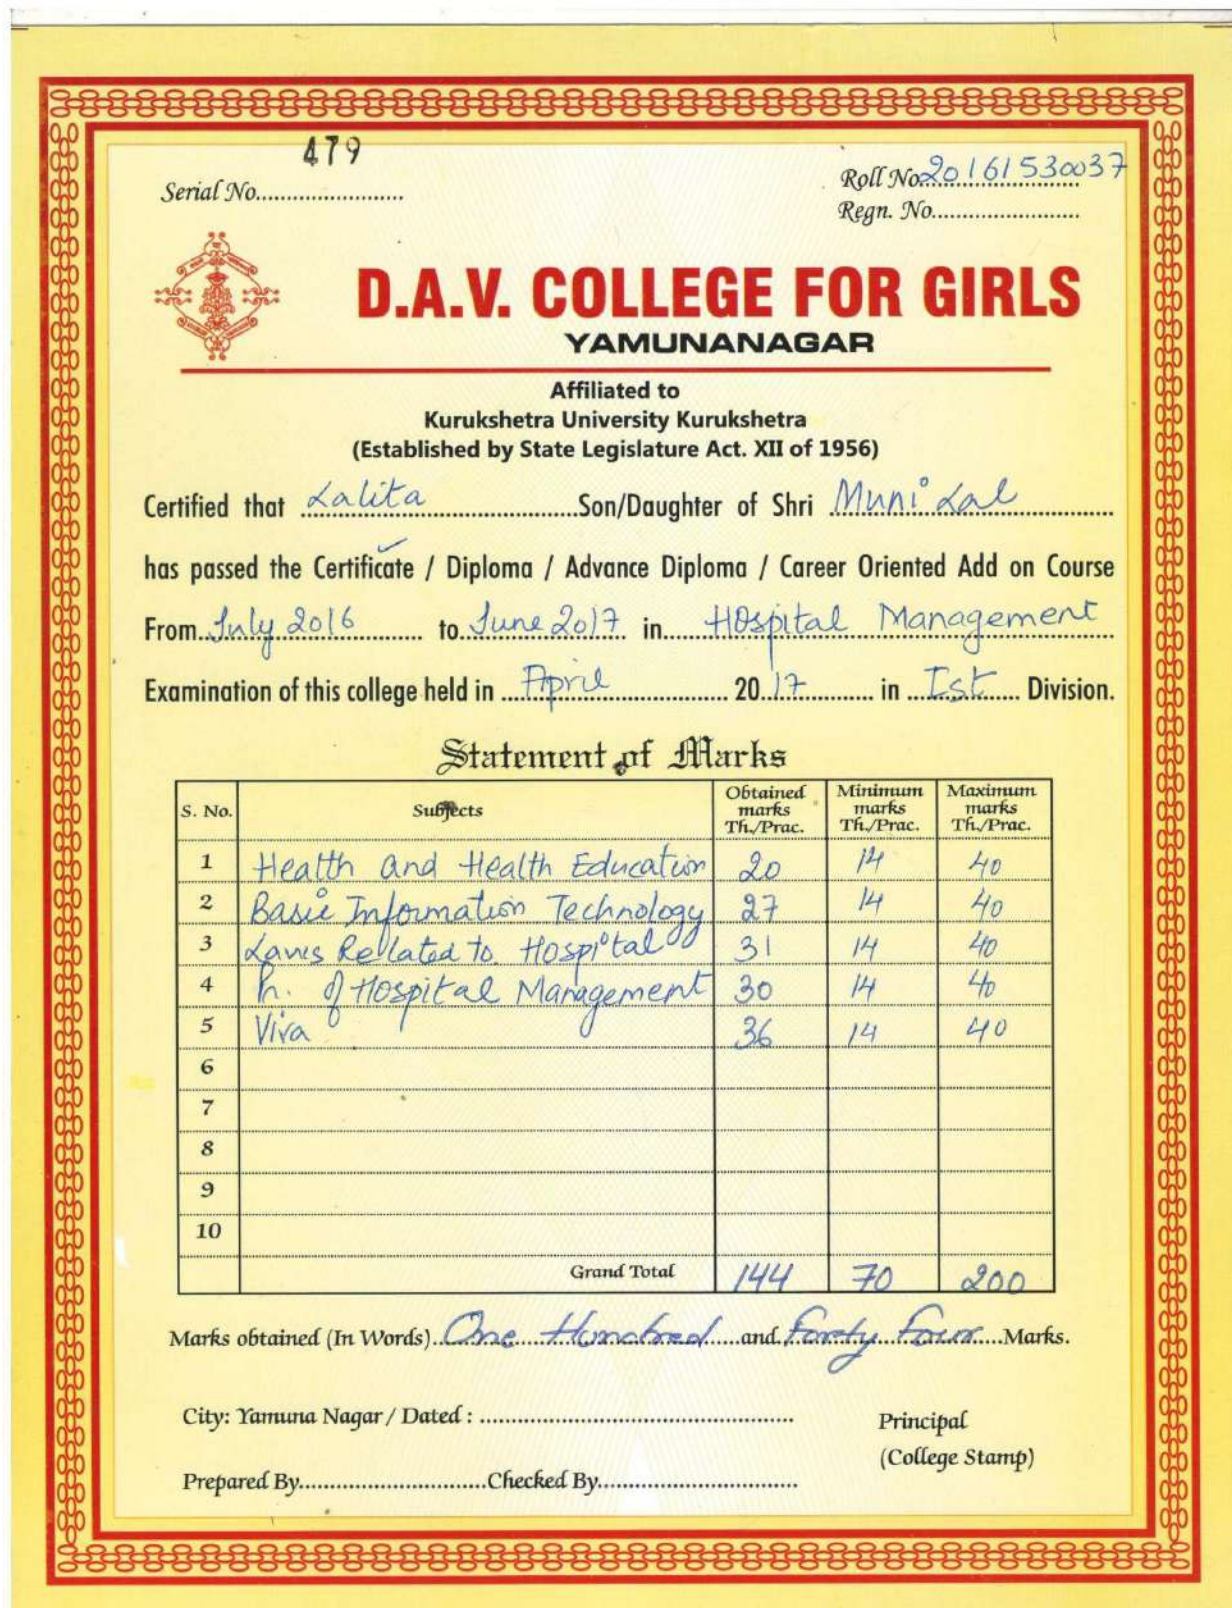 479
Serial No.......................
Roll No. 20161530037
Regn. No.......................
D.A.V. COLLEGE FOR GIRLS
YAMUNANAGAR
Affiliated to
Kurukshetra University Kurukshetra
(Established by State Legislature Act. XII of 1956)
Certified that Lalita Son/Daughter of Shri Muni Lal
has passed the Certificate / Diploma / Advance Diploma / Career Oriented Add on Course
From July 2016 to June 2017 in Hospital Management
Examination of this college held in April 2017 in Ist Division.
Statement of Marks
S. No. Subjects Obtained marks Th./Prac. Minimum marks Th./Prac. Maximum marks Th./Prac.
1 Health and Health Education 20 14 40
2 Basic Information Technology 27 14 40
3 Laws Rellated to Hospital 31 14 40
4 of Hospital Management 30 14 40
5 Viva 36 14 40
6
7
8
9
10
Grand Total 144 70 200
Marks obtained (In Words) One Hundred and Forty Four Marks.
City: Yamuna Nagar / Dated : .......................
Principal
(College Stamp)
Prepared By.......................Checked By.......................